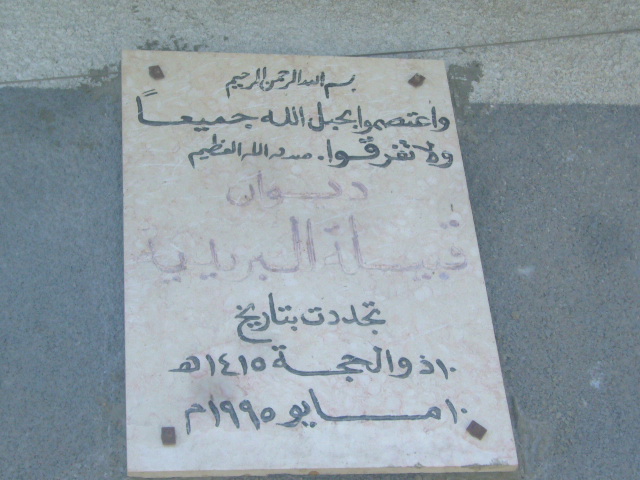 بسم الله الرحمن الرحيم
واعتصموا بحبل الله جميعاً
ولا تفرقوا. صدق الله العظيم
ديوان
قبيلة البريدية
تجددت بتاريخ
١٠ ذو الحجة ١٤١٥هـ
١٠ مايو ١٩٩٥م